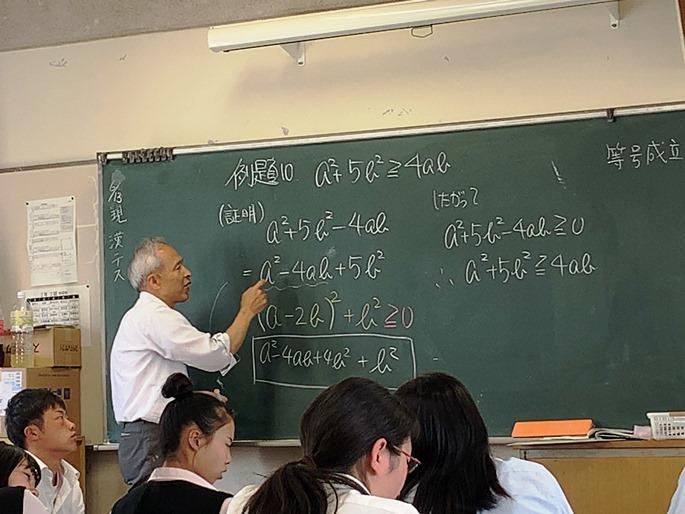 例題10 a²+5b²≧4ab
(証明)
a²+5b²-4ab
=a²-4ab+5b²
(a-2b)²+b²≧0
a²-4ab+4b²+b²
したがって
a²+5b²-4ab≧0
∴ a²+5b²≧4ab
等号成立
漢テス